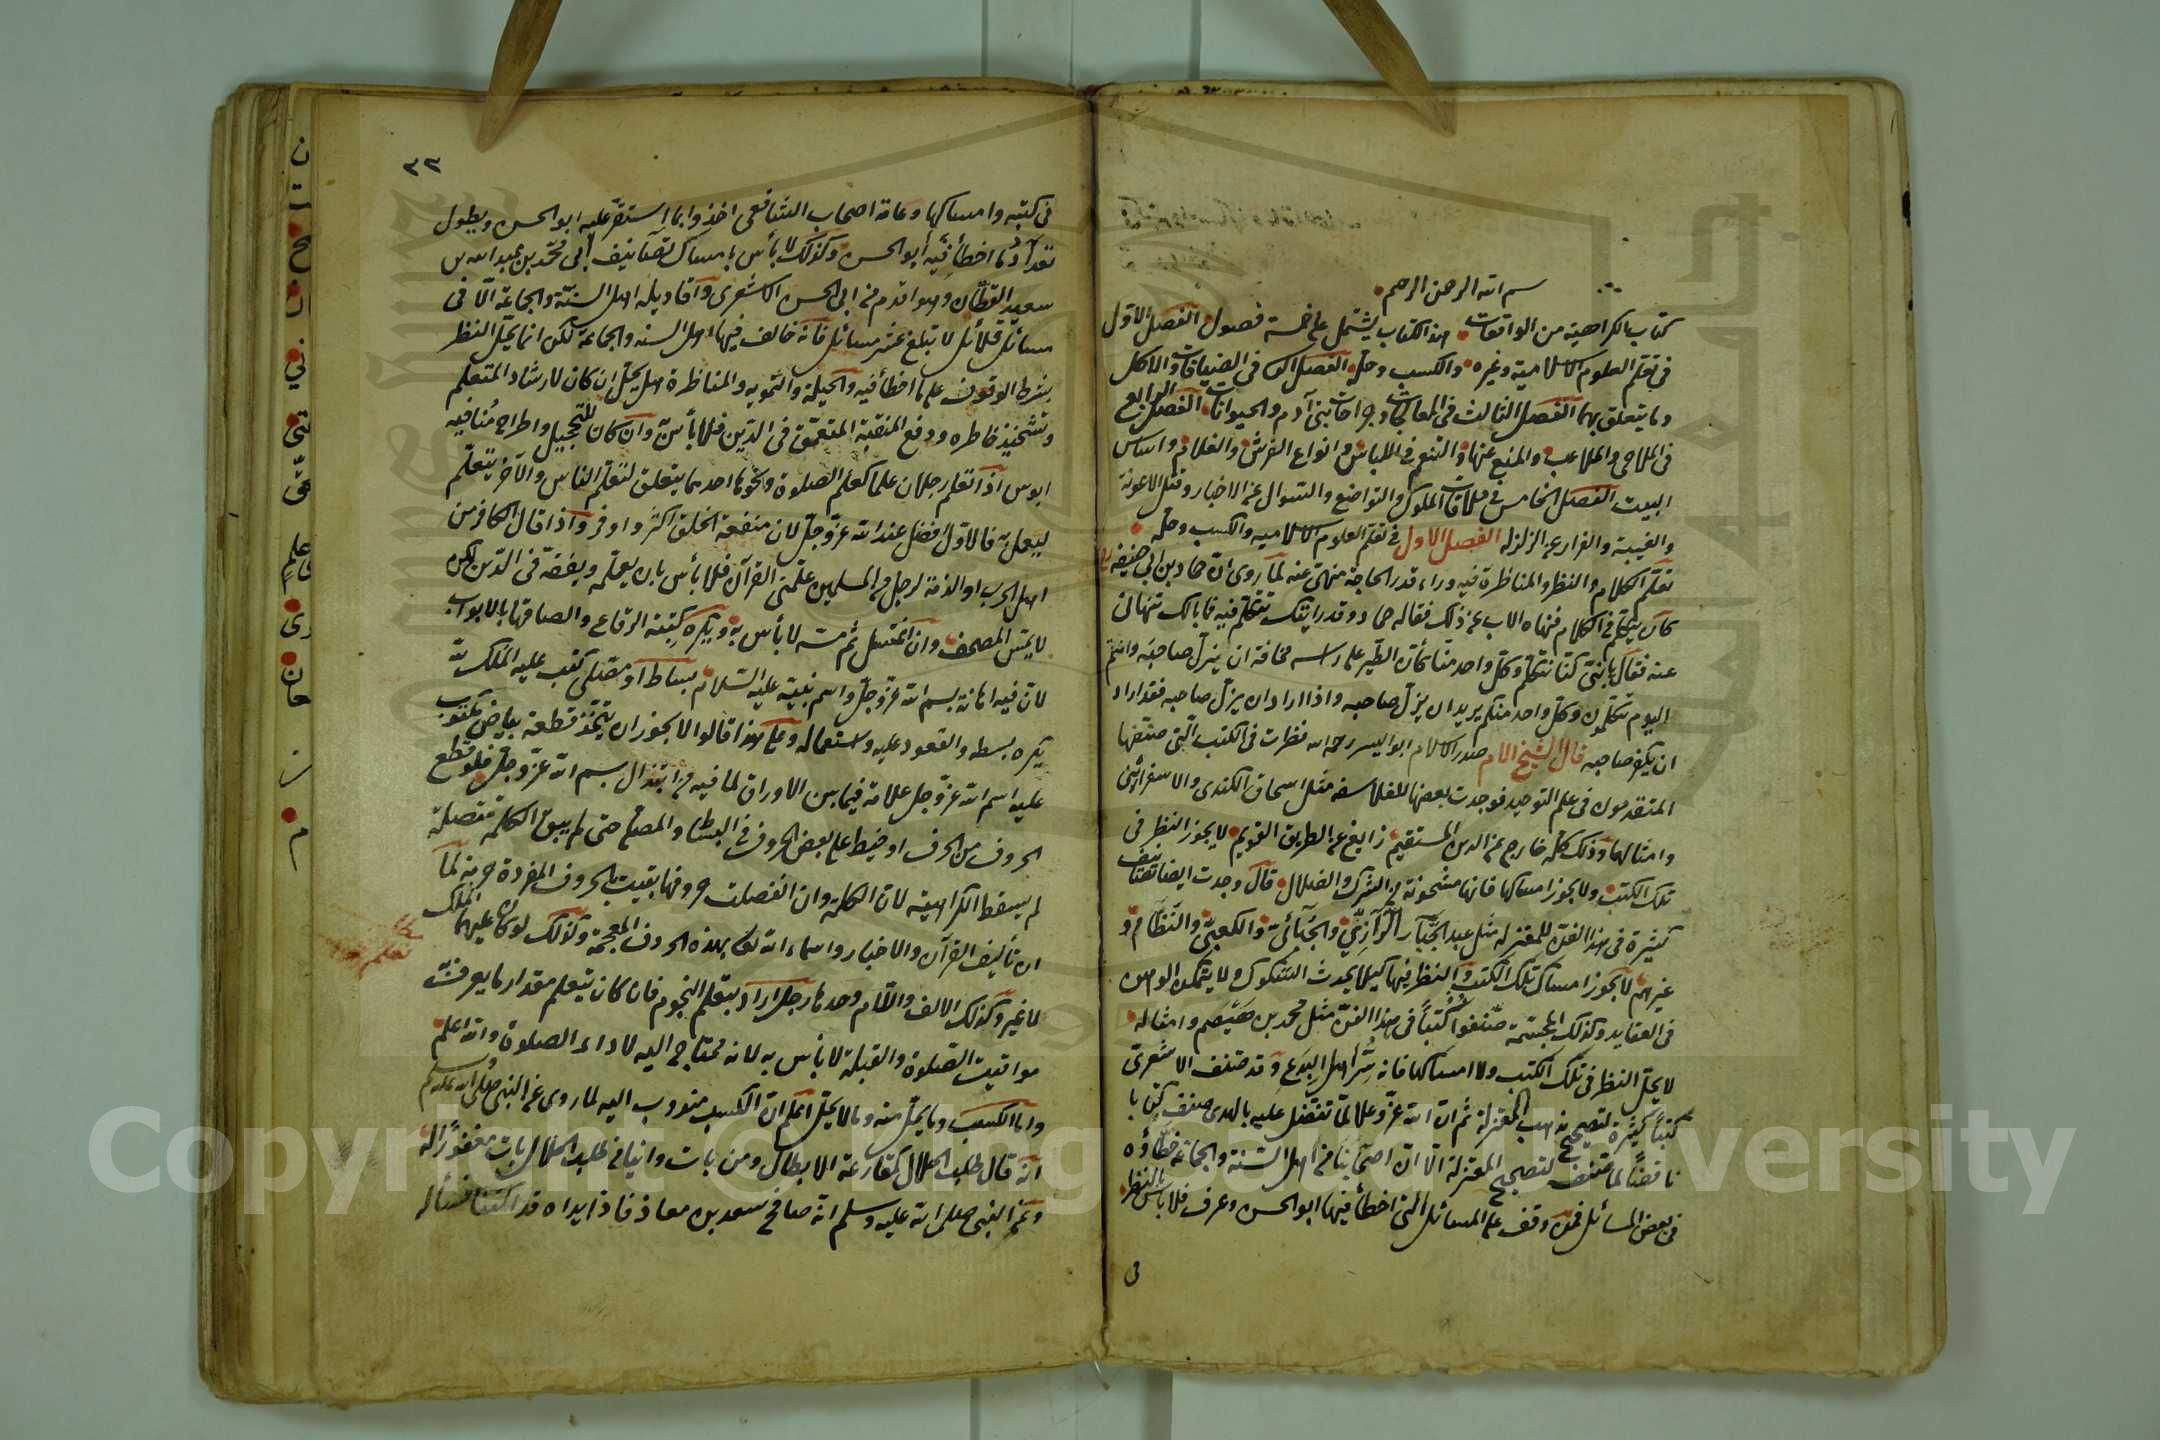 بسم الله الرحمن الرحيم
كتاب الكراهية من الواقعات هذا الكتاب يشتمل على خمسة فصول الفصل الاول
فى تعلم العلوم الاسلامية وغيره والكسب وحله الفصل الثانى فى الضيافات والاكل
وما يتعلق بهما الفصل الثالث فى المعالجات وجراحات بنى آدم والحيوانات الفصل الرابع
فى الملاهى والملاعب والمنع عنها والتنعم فى اللباس وانواع الفرش والغلام واساس
البيت الفصل الخامس فى ملاقات الملوك والتواضع والسوال عن الاخبار وقتل الاعونة
والغيبة والفرار عن الزلزلة الفصل الاول فى تعلم العلوم الاسلاميه والكسب وحله
تعلم الكلام والنظر والمناظرة فيه وراء قدر الحاجة منهى عنه لما روى ان حماد بن ابى حنيفه
كان يتكلم فى الكلام فنهاه الاب عن ذلك فقال حماد وقد رايتك تتكلم فيه فما بالك تنهانى
عنه فقال يا بنى كنا نتكلم وكل واحد منا كأن الطير على راسه مخافة ان يزل صاحبه وانتم
اليوم تتكلمون وكل واحد منكم يريد ان يزل صاحبه واذا اراد ان يزل صاحبه فقد اراد
ان يكفر صاحبه قال الشيخ الامام صدر الاسلام ابو اليسر رحمه الله نظرت فى الكتب التى صنفها
المتقدمون فى علم التوحيد فوجدت بعضها للفلاسفه مثل اسحاق الكندى والاسفرائنى
وامثالهما وذلك كله خارج عن الدين المستقيم زايغ عن الطريق القويم لا يجوز النظر فى
تلك الكتب ولا يجوز امساكها فانها مشحونة من الشرك والضلال قال وجدت ايضا تصانيف
كثيرة فى هذا الفن للمعتزلة مثل عبد الجبار الرازى والجبائى والكعبى والنظام و
غيرهم لا يجوز امساك تلك الكتب والنظر فيها كيلا يحدث الشكوك ولا يتمكن الوهن
فى العقايد وكذلك المجسمة صنفوا كتبا فى هذا الفن مثل محمد بن هيصم وامثاله
لا يحل النظر فى تلك الكتب ولا امساكها فانه شر اهل البدع وقد صنف الاشعرى
كتبا كثيرة لتصحيح مذاهب المعتزلة ثم ان الله عز وعلا لما تفضل عليه بالهدى صنف كتابا
ناقضا لما صنف لتصحيح المعتزلة الا ان اصحابنا من اهل السنة والجماعة خطأوه
فى بعض المسائل فمن وقف على المسائل التى اخطأ فيها ابو الحسن وعرف فلا بأس بالنظر
فى
٣٢
فى كتبه وامساكها وعامة اصحاب الشافعى اخذوا بما استقر عليه ابو الحسن ويطول
تعداد ما اخطأ فيه أبو الحسن وكذلك لا بأس بامساك تصانيف ابى محمد بن عبد الله بن
سعيد القطان وهو اقدم من ابى الحسن الاشعرى واقاويله اهل السنة والجماعة الا فى
مسائل قلائل لا تبلغ عشر مسائل فانه خالف فيها اهل السنه والجماعة لكن انما يحل النظر
بشرط الوقوف على ما اخطأ فيه والحيلة والتمويه والمناظرة هل يحل ان كان لارشاد المتعلم
وتشحيذ خاطره ودفع المتعمق فى الدين فلا بأس وان كان للتجهيل واطراح
اذا تعلم رجلان علما كعلم الصلوة ونحوها احدهما يتعلق لتعلم الناس والآخر يتعلم
ليعمل به فالاول افضل عند الله عز وجل لان منفعة الخلق اكثر واوفر واذا قال الكافر من
اهل الحرب او الذمة لرجل من المسلمين علمنى القرآن فلا بأس بان يعلمه ويفقه فى الدين لكن
لا يمس المصحف وان اغتسل ثم مسه لا بأس به ويكره كتبة الرقاع والصاقها بالابواب
لان فيه اهانة بسم الله عز وجل واسم نبيه عليه السلام بساط أو مصلى كتب عليه الملك لله
يكره بسطه والقعود عليه واستعماله وعلى هذا قالوا لا يجوز ان يتخذ قطعة بياض مكتوب
عليه اسم الله عز وجل علامة فيما بين الاوراق لما فيه من ابتذال بسم الله عز وجل فلو قطع
الحروف من الحرف او خيط على بعض الحروف فى البساط والمصلى حتى لم يبق الكلمة متصلة
لم يسقط الكراهية لان الكلمة وان انفصلت حروفها بقيت بالحروف المفردة حرمة لما
ان تأليف القرآن والاخبار واسماء الله تعالى بهذه الحروف المعجمة وكذلك لو كان عليهما الملك
لا غير وكذلك الالف واللام وحدها رجل اراد بتعلم النجوم فان كان يتعلم مقدار ما يعرف به
مواقيت الصلوة والقبلة لا بأس به لانه محتاج اليه لاداء الصلوة والله اعلم
واما الكسب وما يحل منه وما لا يحل اعلم ان الكسب مندوب اليه لما روى عن النبى صلى الله عليه وسلم
انه قال طلب الحلال كمقارعة الابطال ومن بات وانيا فى طلب الحلال بات مغفورا له
وعن النبى صلى الله عليه وسلم انه صافح سعد بن معاذ فاذا يداه قد اكتبتا فسأله
تعلم
Copyright © King Saud University